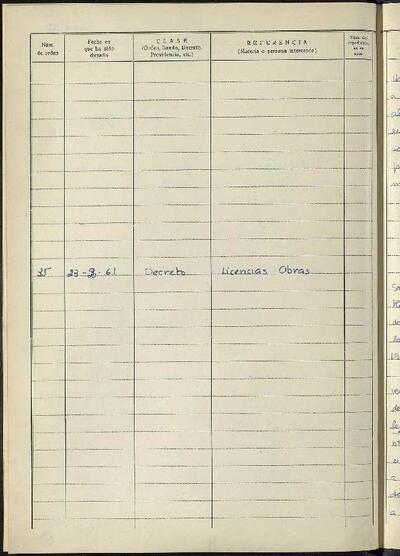 Núm. de orden
Fecha en que ha sido dictado
CLASE
(Orden, Bando, Decreto, Providencia, etc.)
REFERENCIA
(Materia o persona interesada)
35 23-2-61 Decreto Licencias Obras